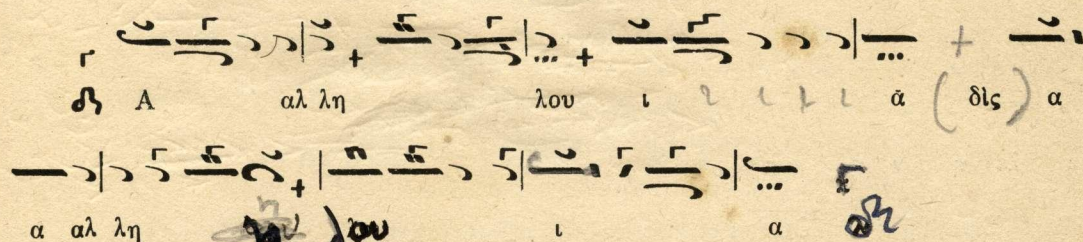 Α αλ λη λου ι ι ι ι ι ᾰ (δὶς) α
α αλ λη λου ι α